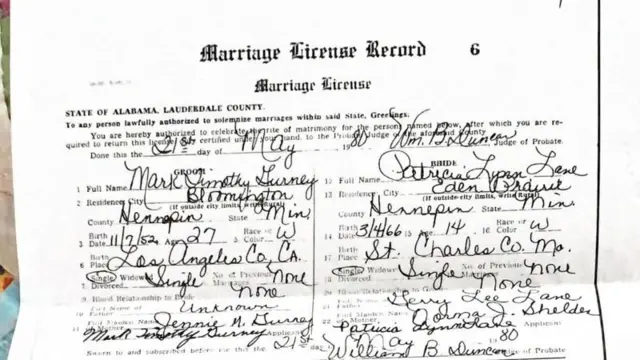 Marriage License Record 6
Marriage License
STATE OF ALABAMA, LAUDERDALE COUNTY.
To any person lawfully authorized to solemnize marriages within said State, Greetings:
You are hereby authorized to celebrate the rite of matrimony for the persons named below, after which you are re-
quired to return this license certified under your hand, to the Probate Judge of the aforesaid county
Done this the 21st day of May 1980 Wm. B. Duncan Judge of Probate.
GROOM
1 Full Name Mark Timothy Gurney
2 Residence City Bloomington
(If outside city limits, write Rural)
County Hennepin State Min
3 Birth Date 11/7/52 Age 27 5 Race or Color W
6 Birth Place Los Angeles Co, CA.
7 Single Widowed Divorced Single No of Previous Marriages None
None
Blood Relationship to Bride
Unknown
Jennie N. Gurney
Mark Timothy Gurney Applicant
Sworn to and subscribed before me this the 21st
BRIDE
Full Name Patricia Lynn Lane
13 Residence City Eden Prairie
(If outside city limits, write Rural)
County Hennepin State Min
14 Birth Date 3/4/66 15 Age 14 16 Race or Color W
17 Birth Place St. Charles Co. Mo.
Single Widowed Divorced Single No of Previous None
None
Blood Relationship to Groom
Full Name Terry Lee Lane
Full Maiden Name Norma J. Shelder
Patricia Lynn Lane Applicant
May 1980
William B Duncan